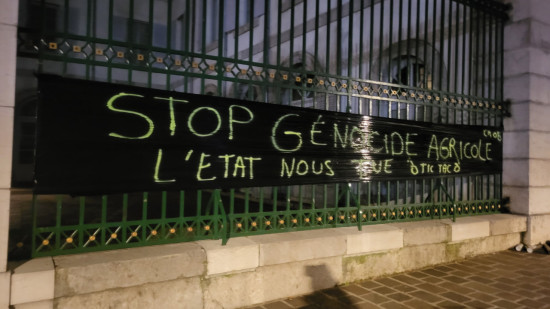 STOP GÉNOCIDE AGRICOLE
L'ETAT NOUS TUE TIC TAC